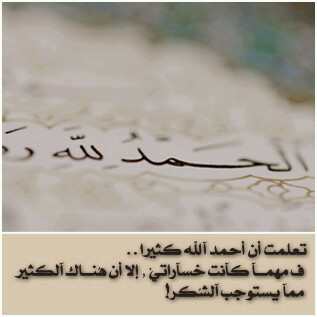 اَلْحَمْدُ لِلَّهِ
تعلمت أن أحمد آلله كثيرا . .
ف مهمـآ كـآنت خسآرآتيے , إلا أن هنـاك آلكثير
ممآ يستوجب آلشكر!